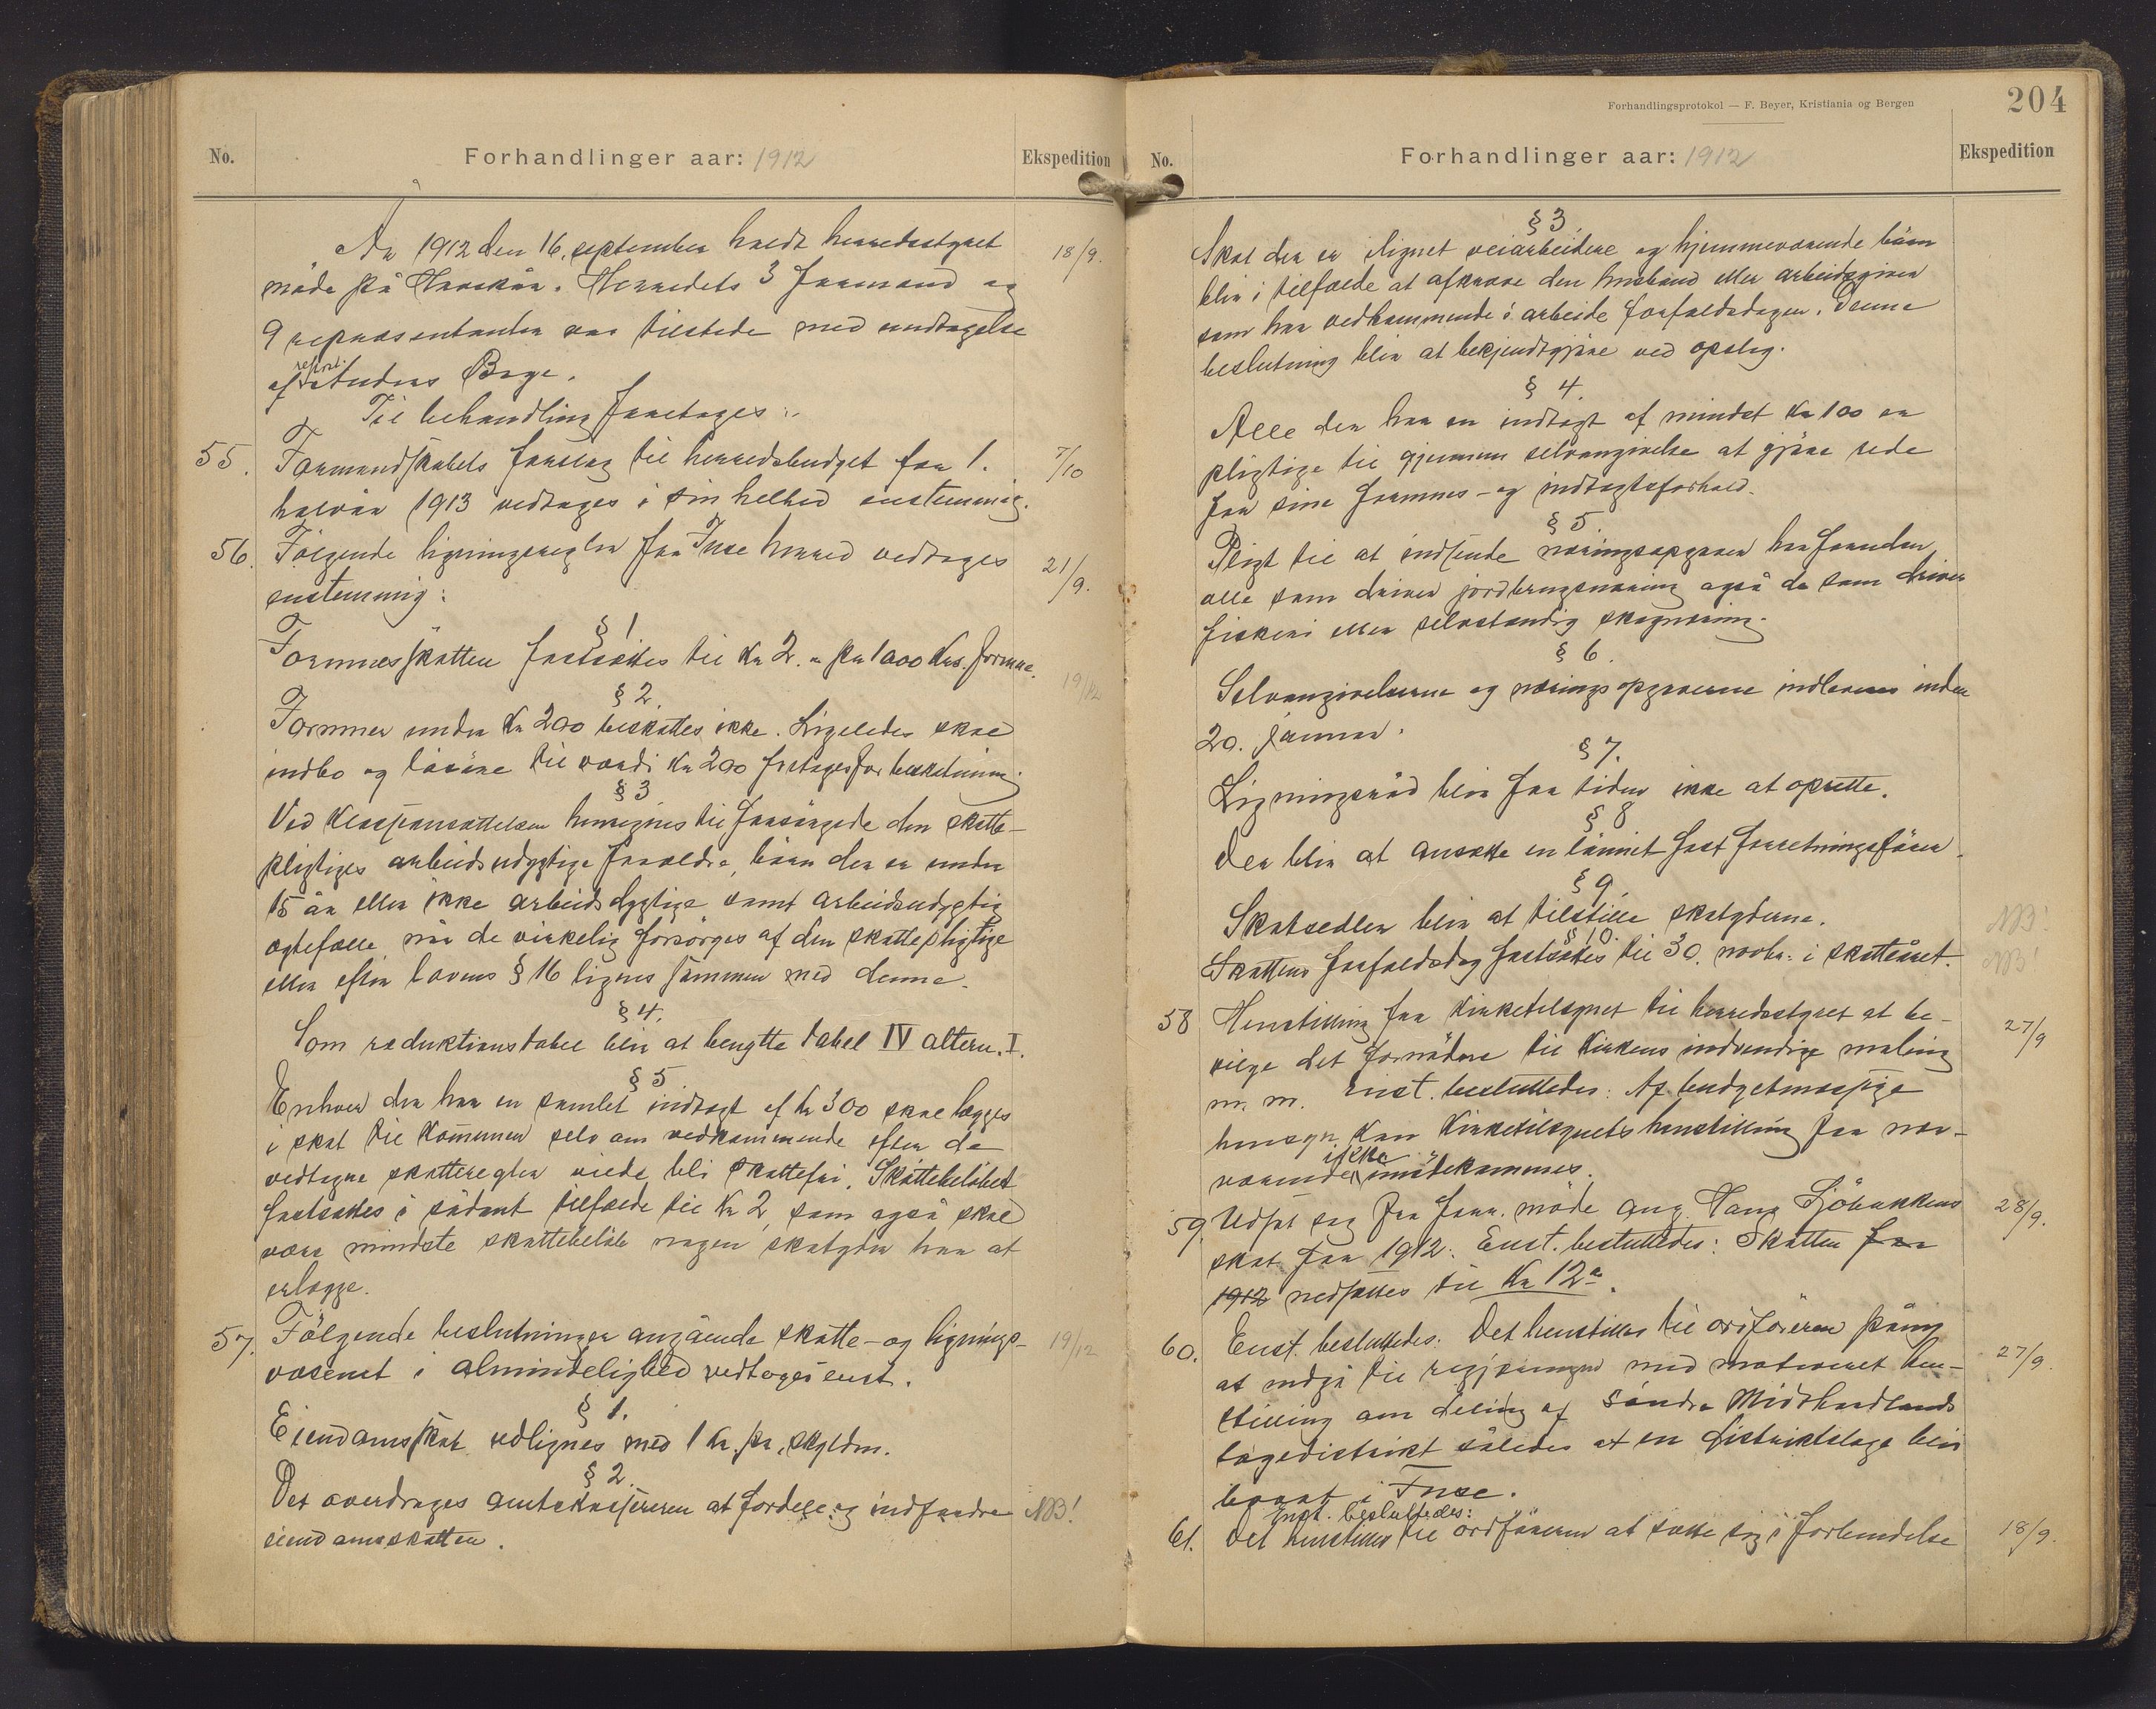 No.
Forhandlinger aar: 1912
Ekspedition
År 1912 den 16. september holdt herredsstyret
18/9.
møde på Havskår. Herredets 3 formænd og
9 repræsentanter var tilstede med undtagelse
repræ.
af Anders Berge.
Til behandling foretoges:
55. Formandskabets forslag til herredsbudget for 1.
7/10
halvår 1913 vedtages i sin helhed enstemmig.
56. Følgende ligningsregler for Fuse herred vedtages
21/9.
enstemmig:
§ 1
Formuesskatten fastsættes til Kr 2.- pr 1000 Krs. formue.
19/12
§ 2.
Formuer under Kr 200 beskattes ikke. Ligeledes skal
indbo og løsøre til værdi Kr 200 fritages for beskatning.
§ 3
Ved klasseansættelsen henregnes til forsørgede den skatte-
pligtiges arbeidsudygtige forældre, børn der er under
15 år eller ikke arbeidsdygtige samt arbeidsudygtig
ægtefælle når de virkelig forsørges af den skattepligtige
eller efter lovens § 16 lignes sammen med denne.
§ 4.
Som reduktionstabel blir at benytte tabel IV altern. I.
§ 5
Enhver der har en samlet indtægt af kr 300 skal lægges
i skat til kommunen selv om vedkommende efter de
vedtagne skatteregler vilde bli skattefri. Skattebeløbet
fastsættes i sådant tilfælde til Kr 2, som også skal
være mindste skattebeløb nogen skatyder har at
erlægge.
57. Følgende beslutninger angående skatte- og lignings-
19/12
væsenet i almindelighed vedtoges enst.
§ 1.
Eiendomsskat udlignes med 1 kr. pr. skyldm.
§ 2.
Det overdrages amtskassereren at fordele og indfordre
NB!
eiendomsskatten.
Forhandlingsprotokol — F. Beyer, Kristiania og Bergen
204
No.
Forhandlinger aar: 1912
Ekspedition
§ 3
Skat der er ilignet veiarbeidere og hjemmeværende børn
blir i tilfælde at afkræve den husbond eller arbeidsgiver
som har vedkommende i arbeide forfaldsdagen. Denne
beslutning blir at bekjendtgjøre ved opslag.
§ 4.
Alle der har en indtægt af mindst Kr 100 er
pligtige til gjennem selvangivelse at gjøre rede
for sine formues- og indtægtsforhold.
§ 5.
Pligt til at indsende næringsopgaver har foruden
alle som driver jordbrugsnæring også de som driver
fiskeri eller selvstændig skognæring.
§ 6.
Selvangivelserne og næringsopgaverne indleveres inden
20. januar.
§ 7.
Ligningsråd blir for tiden ikke at oprette.
§ 8
Der blir at ansætte en lønnet fast forretningsfører.
§ 9.
Skatsedler blir at tilstille skatyderne.
NB!
§ 10.
Skattens forfaldsdag fastsættes til 30. novbr. i skatteåret.
NB!
58 Henstilling fra kirketilsynet til herredsstyret at be-
27/9
vilge det fornødne til kirkens indvendige maling
m. m. Enst. besluttedes: Af budgetmæssige
hensyn kan kirketilsynets henstilling for nær-
ikke
værende imødekommes.
59. Udsat sag fra form. møde ang. Hans Sjøbakkens
28/9.
skat for 1912. Enst. besluttedes: Skatten for
1912 nedsættes til Kr 12.-
60. Enst. besluttedes: Det henstilles til ordføreren påny
27/9.
at indgå til regjeringen med motiveret hen-
stilling om deling af Søndre Midthordlands
lægedistrikt således at en distriktslæge blir
bosat i Fuse.
Enst. besluttedes:
61. Det henstilles til ordføreren at sætte sig i forbindelse
18/9.